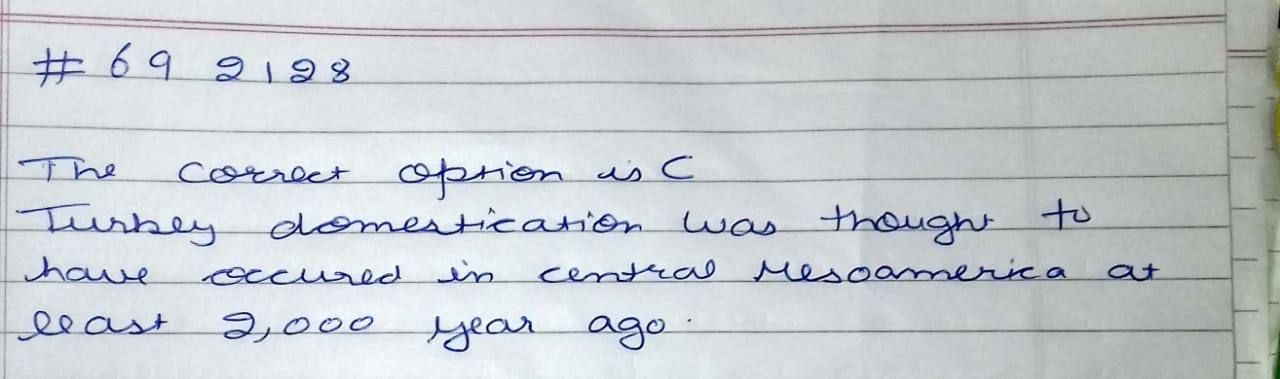 # 69 2128
The correct option is C
Turkey domestication was thought to
have occured in central Mesoamerica at
least 2,000 year ago.